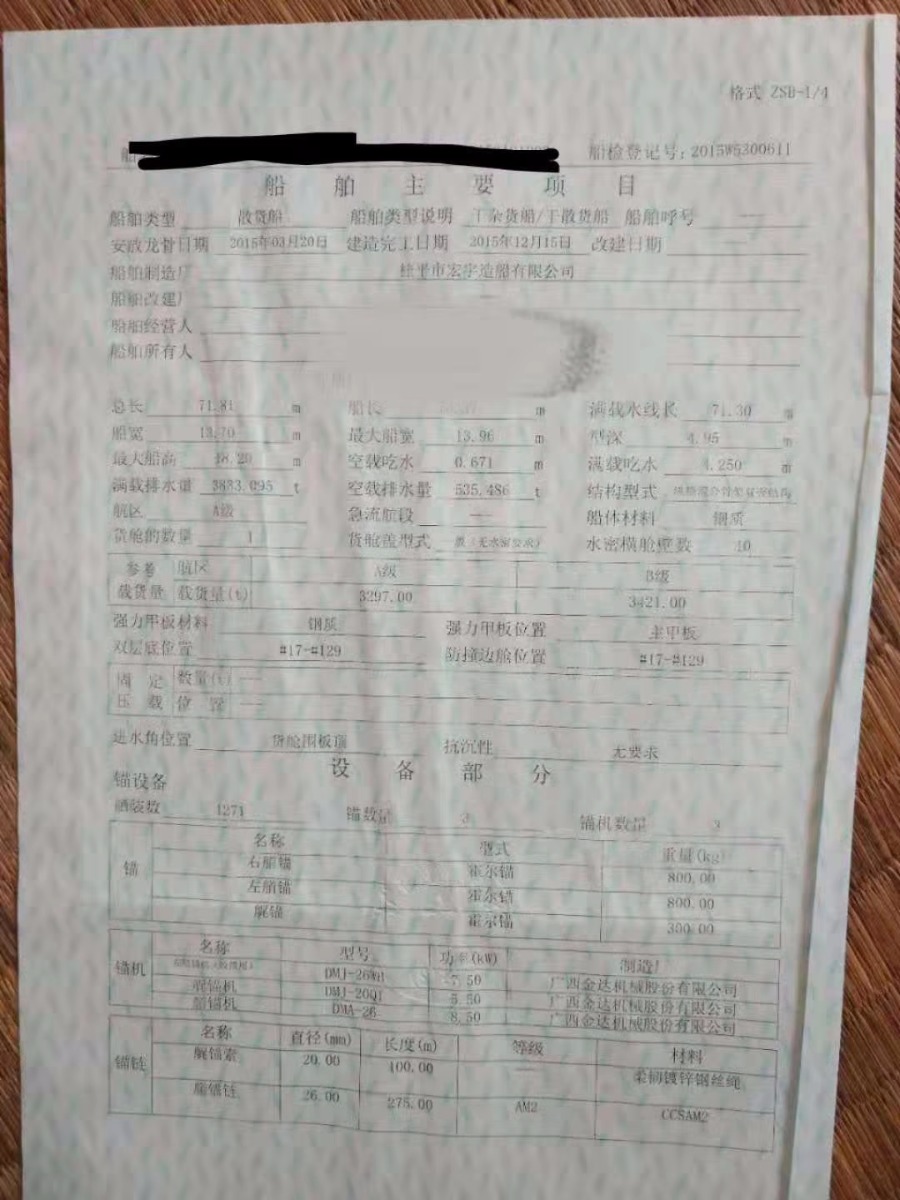 格式 ZSB-1/4
船检登记号：2015W5300611
船舶主要项目
船舶类型 散货船 船舶类型说明 干杂货船/干散货船 船舶呼号 —
安放龙骨日期 2015年03月20日 建造完工日期 2015年12月15日 改建日期
船舶制造厂 桂平市宏宇造船有限公司
船舶改建厂 —
船舶经营人
船舶所有人
总长 71.81 m 船长 m 满载水线长 71.30 m
船宽 13.70 m 最大船宽 13.96 m 型深 4.95 m
最大船高 18.20 m 空载吃水 0.671 m 满载吃水 4.250 m
满载排水量 3833.095 t 空载排水量 535.486 t 结构型式
航区 A级 急流航段 — 船体材料 钢质
货舱的数量 1 货舱盖型式 (无水密要求) 水密横舱壁数 10
参考 航区 A级 B级
载货量 载货量(t) 3297.00 3421.00
强力甲板材料 钢质 强力甲板位置 主甲板
双层底位置 #17-#129 防撞边舱位置 #17-#129
固定 数量(t) —
压载 位置 —
进水角位置 货舱围板顶 抗沉性 无要求
设备部分
锚设备
舾装数 1271 锚数量 3 锚机数量 3
锚 名称 型式 重量(kg)
右艏锚 霍尔锚 800.00
左艏锚 霍尔锚 800.00
艉锚 霍尔锚 300.00
锚机 名称 型号 功率(kW) 制造厂
7.50 广西金达机械股份有限公司
艉锚机 DMJ-20QJ 5.50 广西金达机械股份有限公司
艏锚机 DMA-26 8.50 广西金达机械股份有限公司
锚链 名称 直径(mm) 长度(m) 等级 材料
艉锚索 20.00 100.00 — 柔韧镀锌钢丝绳
艏锚链 26.00 275.00 AM2 CCSAM2